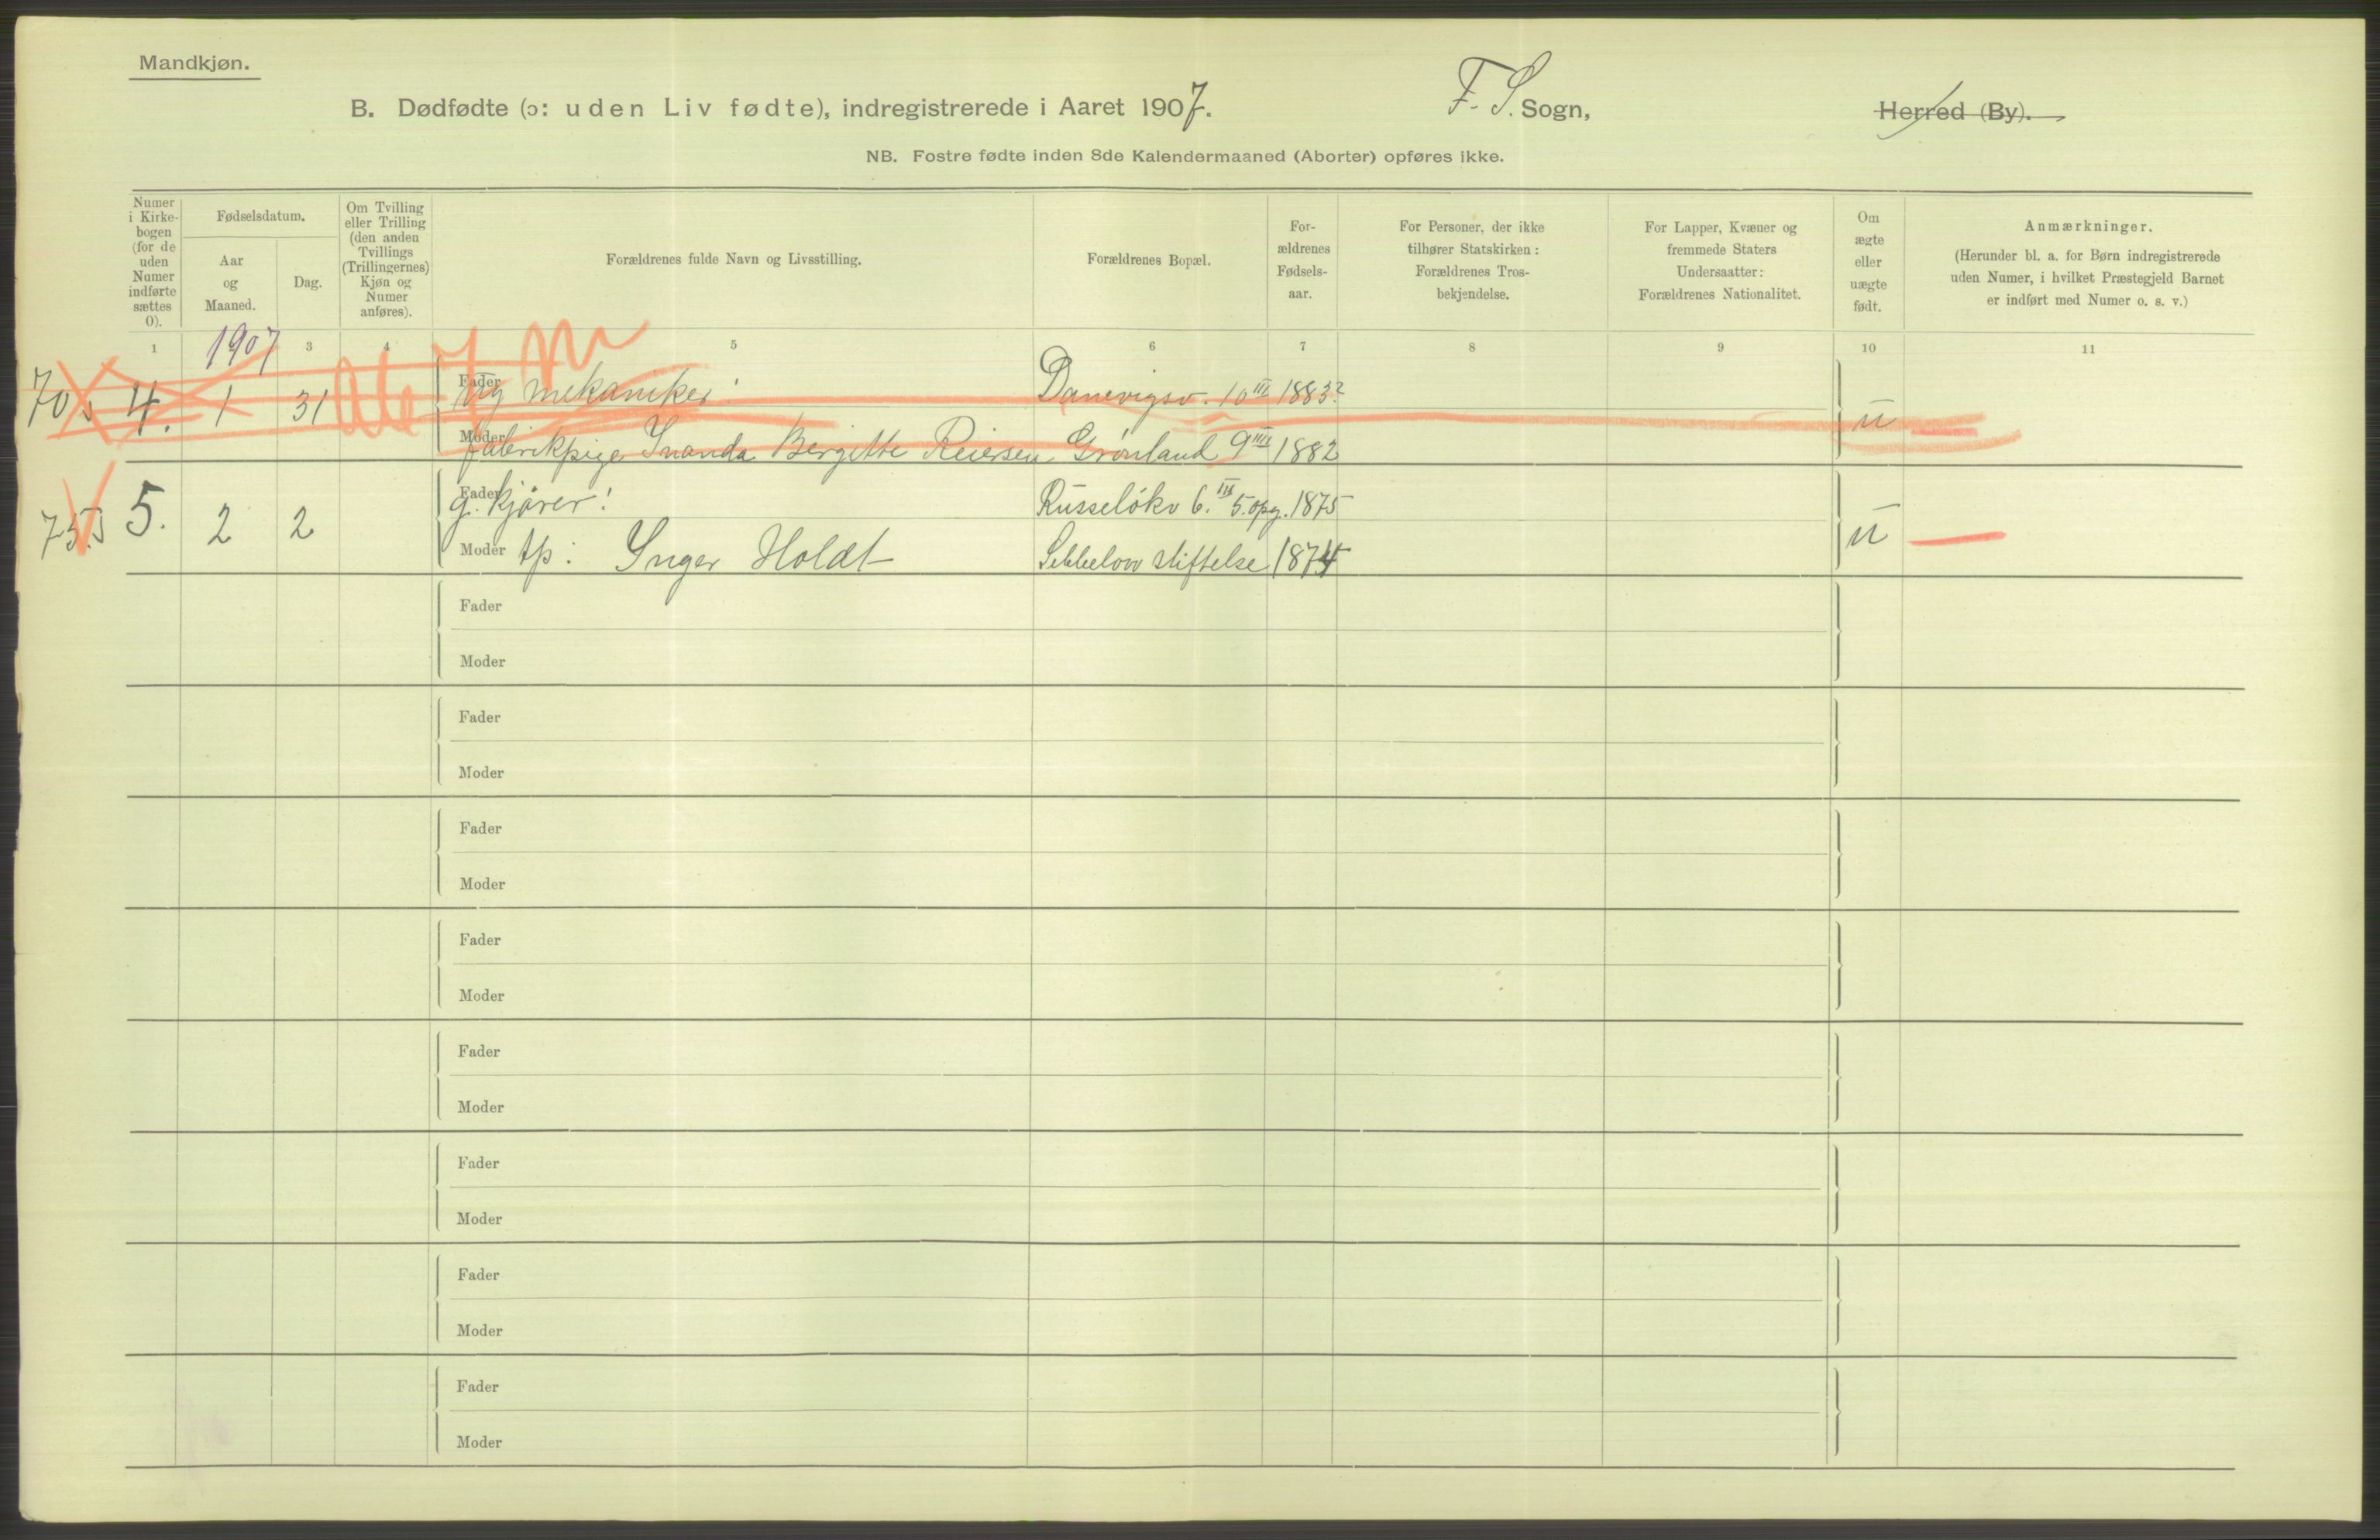 Mandkjøn.
B. Dødfødte (ɔ: uden Liv fødte), indregistrerede i Aaret 1907. F. S. Sogn, Herred (By).
NB. Fostre fødte inden 8de Kalendermaaned (Aborter) opføres ikke.
Numer i Kirkebogen (for de uden Numer indførte sættes 0).
Fødselsdatum.
Aar og Maaned.
Dag.
Om Tvilling eller Trilling (den anden Tvillings (Trillingernes) Kjøn og Numer anføres).
Forældrenes fulde Navn og Livsstilling.
Forældrenes Bopæl.
Forældrenes Fødselsaar.
For Personer, der ikke tilhører Statskirken: Forældrenes Trosbekjendelse.
For Lapper, Kvæner og fremmede Staters Undersaatter: Forældrenes Nationalitet.
Om ægte eller uægte født.
Anmærkninger.
(Herunder bl. a. for Børn indregistrerede uden Numer, i hvilket Præstegjeld Barnet er indført med Numer o. s. v.)
1 3 4 5 6 7 8 9 10 11
1907
70 4. 1 31 Fader Ug mekaniker: Danevigsv. 10 III 1883? u
Moder fabrikpige Inanda Bergitte Reiersen Grønland 9 III 1882
5. 2 2 Fader g. kjører: Russeløkv 6. III 5. opg. 1875 u
Moder tp: Inger Holdt stiftelse 1874
Fader
Moder
Fader
Moder
Fader
Moder
Fader
Moder
Fader
Moder
Fader
Moder
Fader
Moder
Fader
Moder